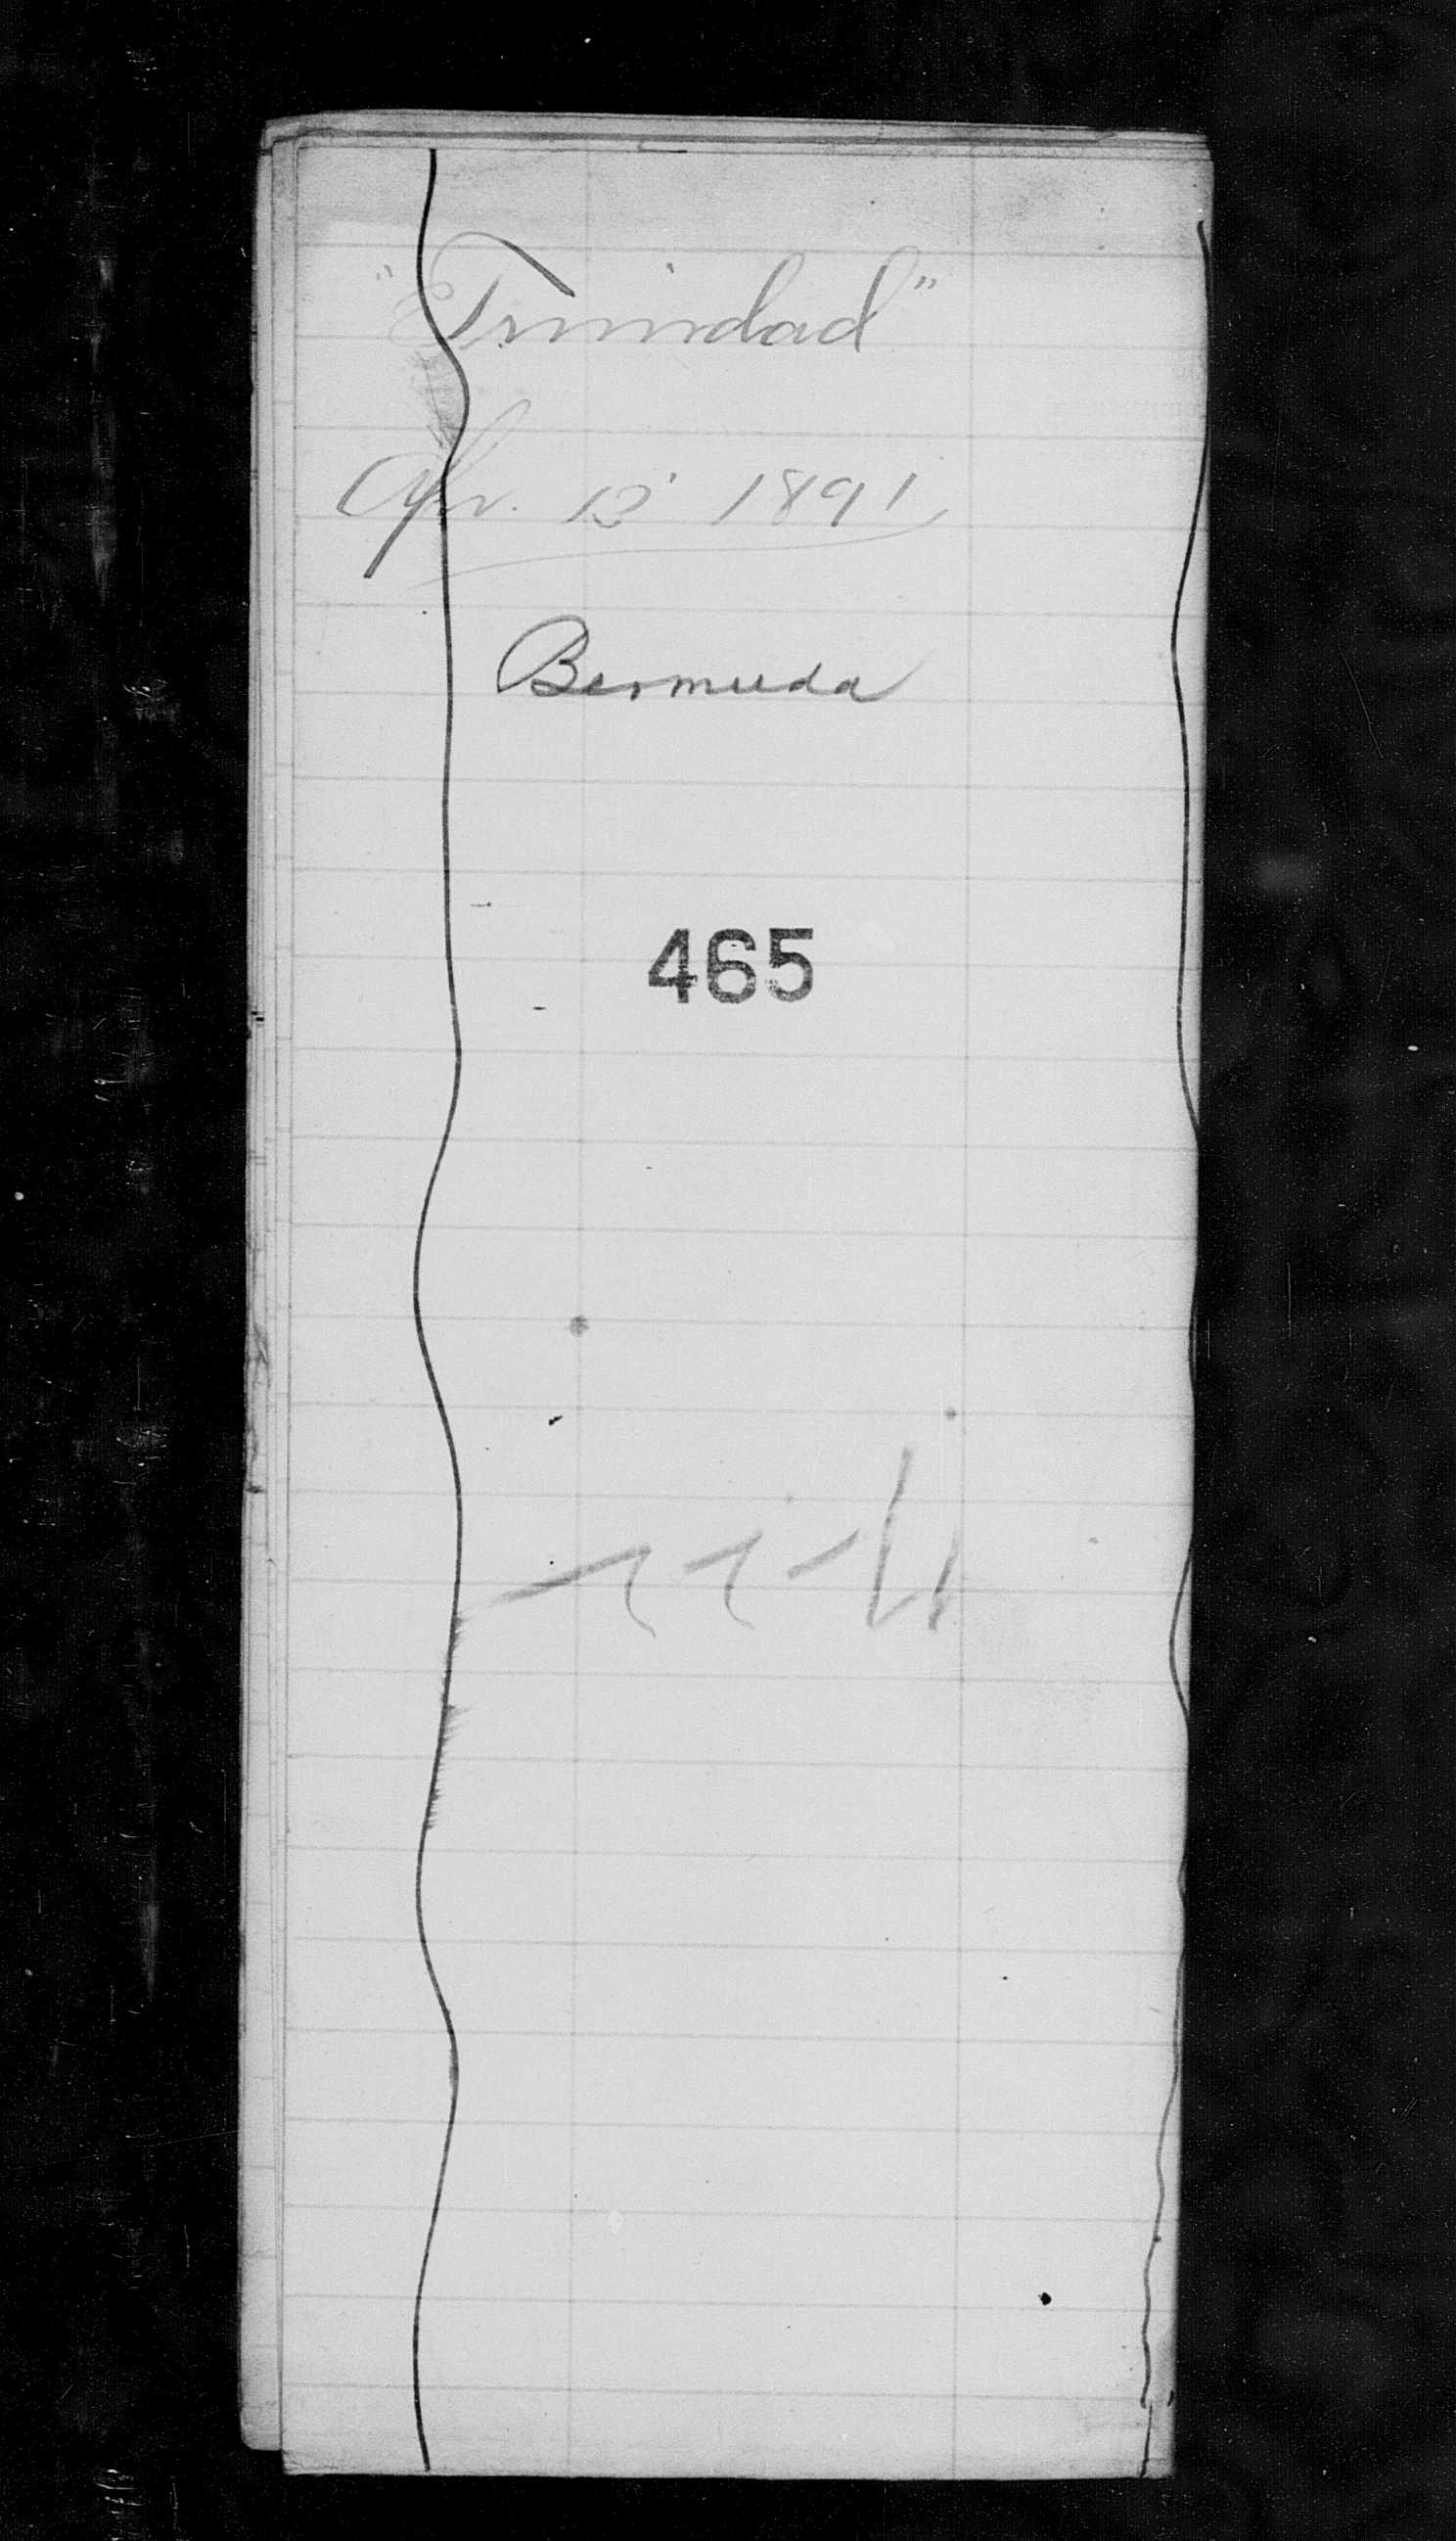 "Trinidad"
Apr. 13 1891
Bermuda
465